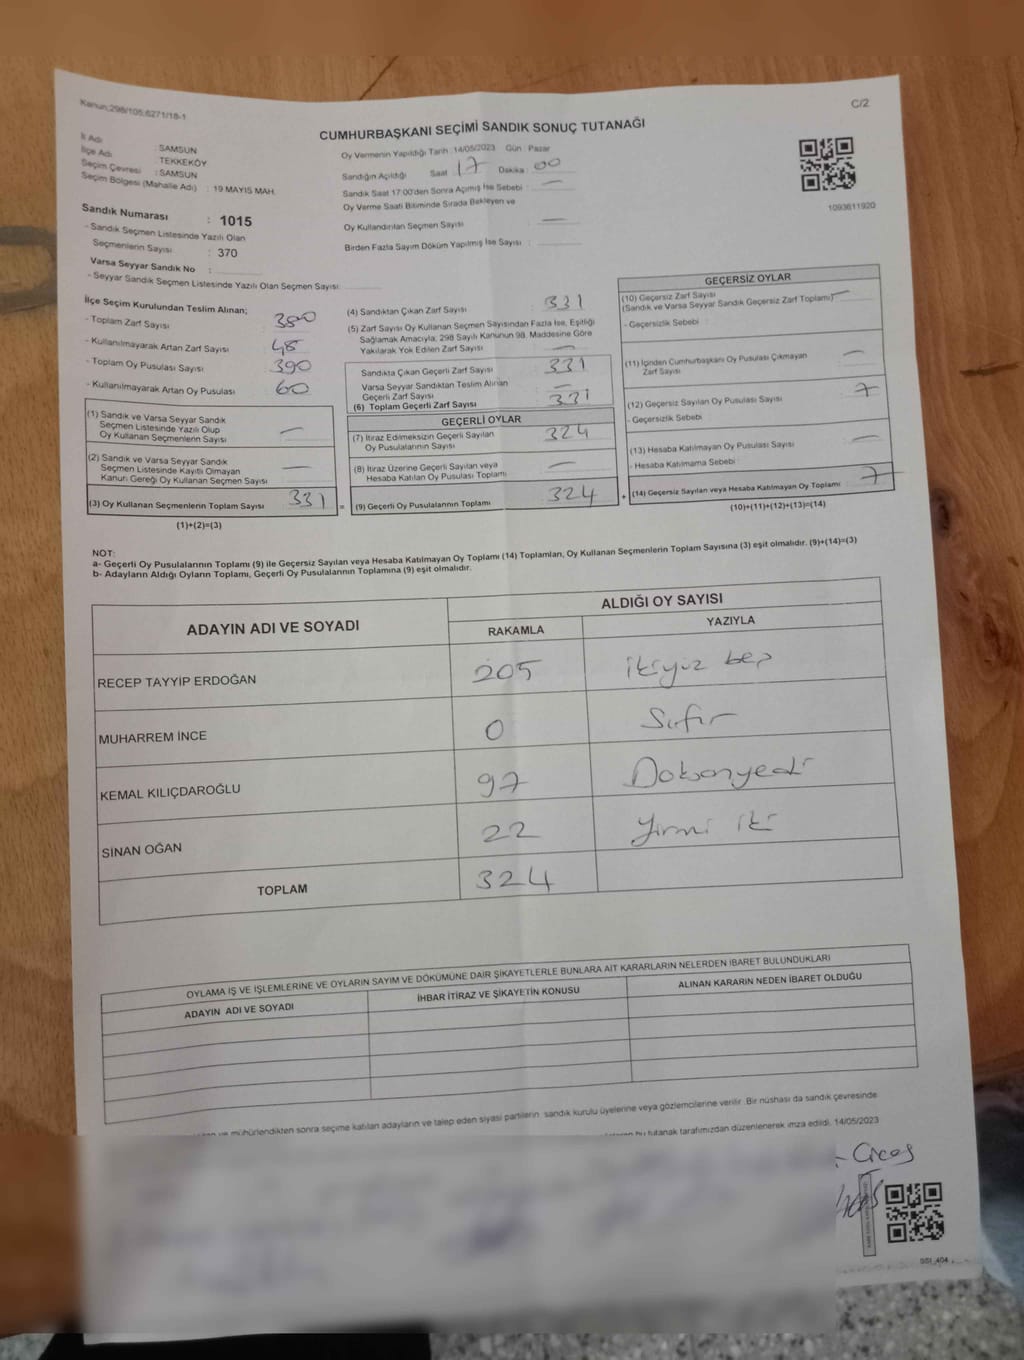 Kanun;298/105;6271/18-1
C/2
CUMHURBAŞKANI SEÇİMİ SANDIK SONUÇ TUTANAĞI
İl Adı : SAMSUN
İlçe Adı : TEKKEKÖY
Seçim Çevresi : SAMSUN
Seçim Bölgesi (Mahalle Adı) : 19 MAYIS MAH.
Sandık Numarası : 1015
- Sandık Seçmen Listesinde Yazılı Olan
Seçmenlerin Sayısı : 370
Varsa Seyyar Sandık No :
- Seyyar Sandık Seçmen Listesinde Yazılı Olan Seçmen Sayısı:
Oy Vermenin Yapıldığı Tarih :14/05/2023 Gün : Pazar
Sandığın Açıldığı Saat : 17 Dakika : 00
Sandık Saat 17:00'den Sonra Açılmış İse Sebebi : —
Oy Verme Saati Bitiminde Sırada Bekleyen ve
Oy Kullandırılan Seçmen Sayısı : —
Birden Fazla Sayım Döküm Yapılmış İse Sayısı : —
1093611920
İlçe Seçim Kurulundan Teslim Alınan;
- Toplam Zarf Sayısı : 380
- Kullanılmayarak Artan Zarf Sayısı : 48
- Toplam Oy Pusulası Sayısı : 390
- Kullanılmayarak Artan Oy Pusulası : 60
(1) Sandık ve Varsa Seyyar Sandık
Seçmen Listesinde Yazılı Olup
Oy Kullanan Seçmenlerin Sayısı : —
(2) Sandık ve Varsa Seyyar Sandık
Seçmen Listesinde Kayıtlı Olmayan
Kanun Gereği Oy Kullanan Seçmen Sayısı : —
(3) Oy Kullanan Seçmenlerin Toplam Sayısı : 331 =
(1)+(2)=(3)
(4) Sandıktan Çıkan Zarf Sayısı : 331
(5) Zarf Sayısı Oy Kullanan Seçmen Sayısından Fazla İse, Eşitliği
Sağlamak Amacıyla; 298 Sayılı Kanunun 98. Maddesine Göre
Yakılarak Yok Edilen Zarf Sayısı : —
Sandıkta Çıkan Geçerli Zarf Sayısı : 331
Varsa Seyyar Sandıktan Teslim Alınan
Geçerli Zarf Sayısı : —
(6) Toplam Geçerli Zarf Sayısı : 331
GEÇERLİ OYLAR
(7) İtiraz Edilmeksizin Geçerli Sayılan
Oy Pusulalarının Sayısı : 324
(8) İtiraz Üzerine Geçerli Sayılan veya
Hesaba Katılan Oy Pusulası Toplamı : —
(9) Geçerli Oy Pusulalarının Toplamı : 324 +
GEÇERSİZ OYLAR
(10) Geçersiz Zarf Sayısı
(Sandık ve Varsa Seyyar Sandık Geçersiz Zarf Toplamı) —
- Geçersizlik Sebebi :
(11) İçinden Cumhurbaşkanı Oy Pusulası Çıkmayan
Zarf Sayısı : —
(12) Geçersiz Sayılan Oy Pusulası Sayısı : 7
- Geçersizlik Sebebi :
(13) Hesaba Katılmayan Oy Pusulası Sayısı : —
- Hesaba Katılmama Sebebi :
(14) Geçersiz Sayılan veya Hesaba Katılmayan Oy Toplamı : 7
(10)+(11)+(12)+(13)=(14)
NOT:
a- Geçerli Oy Pusulalarının Toplamı (9) ile Geçersiz Sayılan veya Hesaba Katılmayan Oy Toplamı (14) Toplamları, Oy Kullanan Seçmenlerin Toplam Sayısına (3) eşit olmalıdır. (9)+(14)=(3)
b- Adayların Aldığı Oyların Toplamı, Geçerli Oy Pusulalarının Toplamına (9) eşit olmalıdır.
ADAYIN ADI VE SOYADI
ALDIĞI OY SAYISI
RAKAMLA YAZIYLA
RECEP TAYYİP ERDOĞAN 205 ikiyüz beş
MUHARREM İNCE 0 Sıfır
KEMAL KILIÇDAROĞLU 97 Doksanyedi
SİNAN OĞAN 22 Yirmi iki
TOPLAM 324
OYLAMA İŞ VE İŞLEMLERİNE VE OYLARIN SAYIM VE DÖKÜMÜNE DAİR ŞİKAYETLERLE BUNLARA AİT KARARLARIN NELERDEN İBARET BULUNDUKLARI
ADAYIN ADI VE SOYADI İHBAR İTİRAZ VE ŞİKAYETİN KONUSU ALINAN KARARIN NEDEN İBARET OLDUĞU
ve mühürlendikten sonra seçime katılan adayların ve talep eden siyasi partilerin sandık kurulu üyelerine veya gözlemcilerine verilir. Bir nüshası da sandık çevresinde
bu tutanak tarafımızdan düzenlenerek imza edildi. 14/05/2023
SSI_404